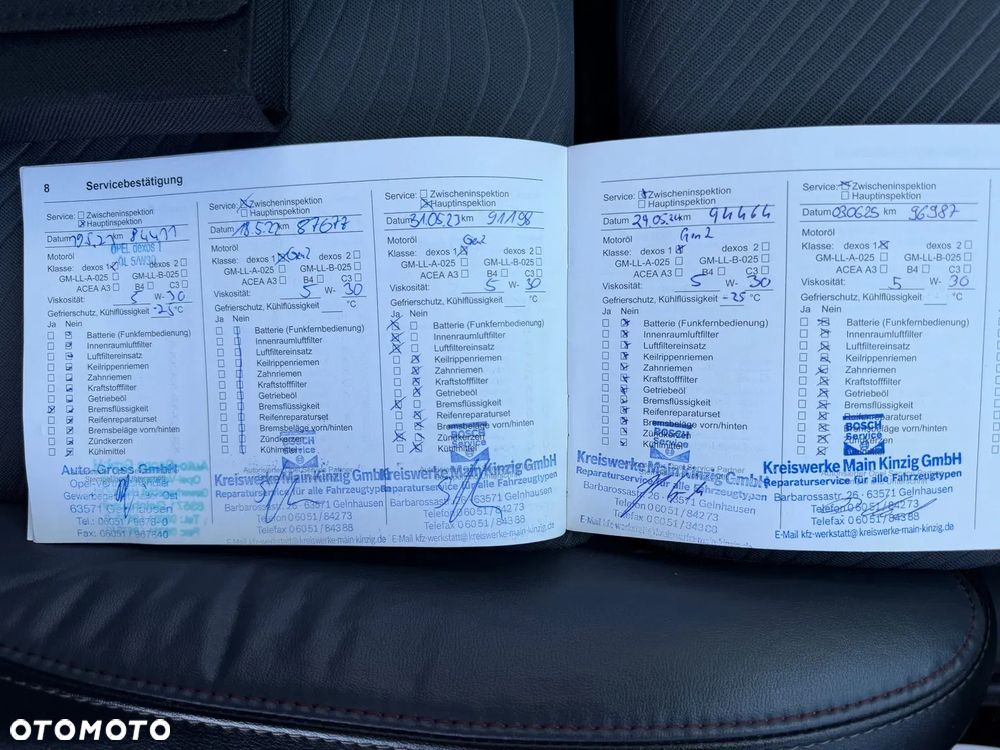 8
Servicebestätigung
Service: Zwischeninspektion
Hauptinspektion
Datum km 84411
OPEL dexos 1
Motoröl
Klasse: dexos 1 dexos 2
GM-LL-A-025 GM-LL-B-025
ACEA A3 B4 C3
Viskosität: 5 W-30
Gefrierschutz, Kühlflüssigkeit -25 °C
Ja Nein
Batterie (Funkfernbedienung)
Innenraumluftfilter
Luftfiltereinsatz
Keilrippenriemen
Zahnriemen
Kraftstofffilter
Getriebeöl
Bremsflüssigkeit
Reifenreparaturset
Bremsbeläge vorn/hinten
Zündkerzen
Kühlmittel
Auto-Gross GmbH
63571 Gelnhausen
Fax: 06051/967840
Service: Zwischeninspektion
Hauptinspektion
Datum 18.5.22 km 87677
Motoröl
Klasse: dexos 1 Gen2 dexos 2
GM-LL-A-025 GM-LL-B-025
ACEA A3 B4 C3
Viskosität: 5 W- 30
Gefrierschutz, Kühlflüssigkeit °C
Ja Nein
Batterie (Funkfernbedienung)
Innenraumluftfilter
Luftfiltereinsatz
Keilrippenriemen
Zahnriemen
Kraftstofffilter
Getriebeöl
Bremsflüssigkeit
Reifenreparaturset
Bremsbeläge vorn/hinten
Zündkerzen
Kühlmittel
BOSCH
Service
Kreiswerke Main Kinzig GmbH
Reparaturservice für alle Fahrzeugtypen
Barbarossastr. 26 - 63571 Gelnhausen
Telefon 06051/84273
Telefax 06051/84388
E-Mail kfz-werkstatt@kreiswerke-main-kinzig.de
Service: Zwischeninspektion
Hauptinspektion
Datum 31.05.23 km 91198
Motoröl Gen2
Klasse: dexos 1 dexos 2
GM-LL-A-025 GM-LL-B-025
ACEA A3 B4 C3
Viskosität: 5 W- 30
Gefrierschutz, Kühlflüssigkeit °C
Ja Nein
Batterie (Funkfernbedienung)
Innenraumluftfilter
Luftfiltereinsatz
Keilrippenriemen
Zahnriemen
Kraftstofffilter
Getriebeöl
Bremsflüssigkeit
Reifenreparaturset
Bremsbeläge vorn/hinten
Zündkerzen
Kühlmittel
BOSCH
Service
Kreiswerke Main Kinzig GmbH
Reparaturservice für alle Fahrzeugtypen
Barbarossastr. 26 - 63571 Gelnhausen
Telefon 06051/84273
Telefax 06051/84388
E-Mail kfz-werkstatt@kreiswerke-main-kinzig.de
Service: Zwischeninspektion
Hauptinspektion
Datum 29.05.24 km 94464
Motoröl Gen2
Klasse: dexos 1 dexos 2
GM-LL-A-025 GM-LL-B-025
ACEA A3 B4 C3
Viskosität: 5 W- 30
Gefrierschutz, Kühlflüssigkeit -25 °C
Ja Nein
Batterie (Funkfernbedienung)
Innenraumluftfilter
Luftfiltereinsatz
Keilrippenriemen
Zahnriemen
Kraftstofffilter
Getriebeöl
Bremsflüssigkeit
Reifenreparaturset
Bremsbeläge vorn/hinten
Zündkerzen
Kühlmittel
BOSCH
Service
Kreiswerke Main Kinzig GmbH
Reparaturservice für alle Fahrzeugtypen
Barbarossastr. 26 - 63571 Gelnhausen
Telefon 06051/84273
Telefax 06051/84388
E-Mail kfz-werkstatt@kreiswerke-main-kinzig.de
Service: Zwischeninspektion
Hauptinspektion
Datum 030625 km 96987
Motoröl
Klasse: dexos 1 dexos 2
GM-LL-A-025 GM-LL-B-025
ACEA A3 B4 C3
Viskosität: 5 W- 30
Gefrierschutz, Kühlflüssigkeit °C
Ja Nein
Batterie (Funkfernbedienung)
Innenraumluftfilter
Luftfiltereinsatz
Keilrippenriemen
Zahnriemen
Kraftstofffilter
Getriebeöl
Bremsflüssigkeit
Reifenreparaturset
Bremsbeläge vorn/hinten
BOSCH
Service
Kreiswerke Main Kinzig GmbH
Reparaturservice für alle Fahrzeugtypen
Barbarossastr. 26 - 63571 Gelnhausen
Telefon 06051/84273
Telefax 06051/84388
E-Mail kfz-werkstatt@kreiswerke-main-kinzig.de
OTOMOTO